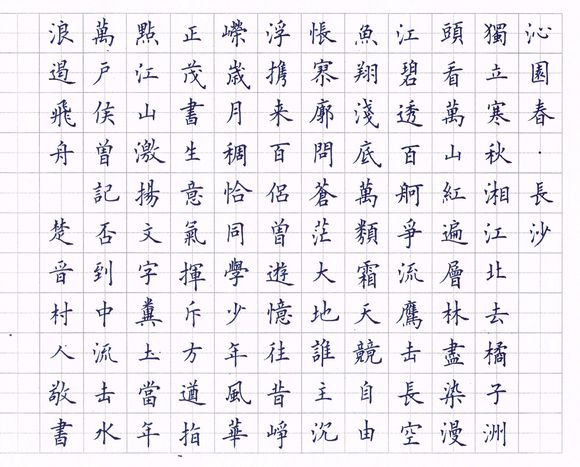 沁園春·長沙
獨立寒秋湘江北去橘子洲
頭看萬山紅遍層林盡染漫
江碧透百舸爭流鷹击長空
魚翔淺底萬類霜天競自由
悵寥廓問蒼茫大地誰主沉
浮携来百侣曾遊憶往昔崢
嶸歲月稠恰同學少年風華
正茂書生意氣揮斥方遒指
點江山激揚文字糞土當年
萬戶侯曾記否到中流击水
浪遏飛舟 楚晋村人敬書